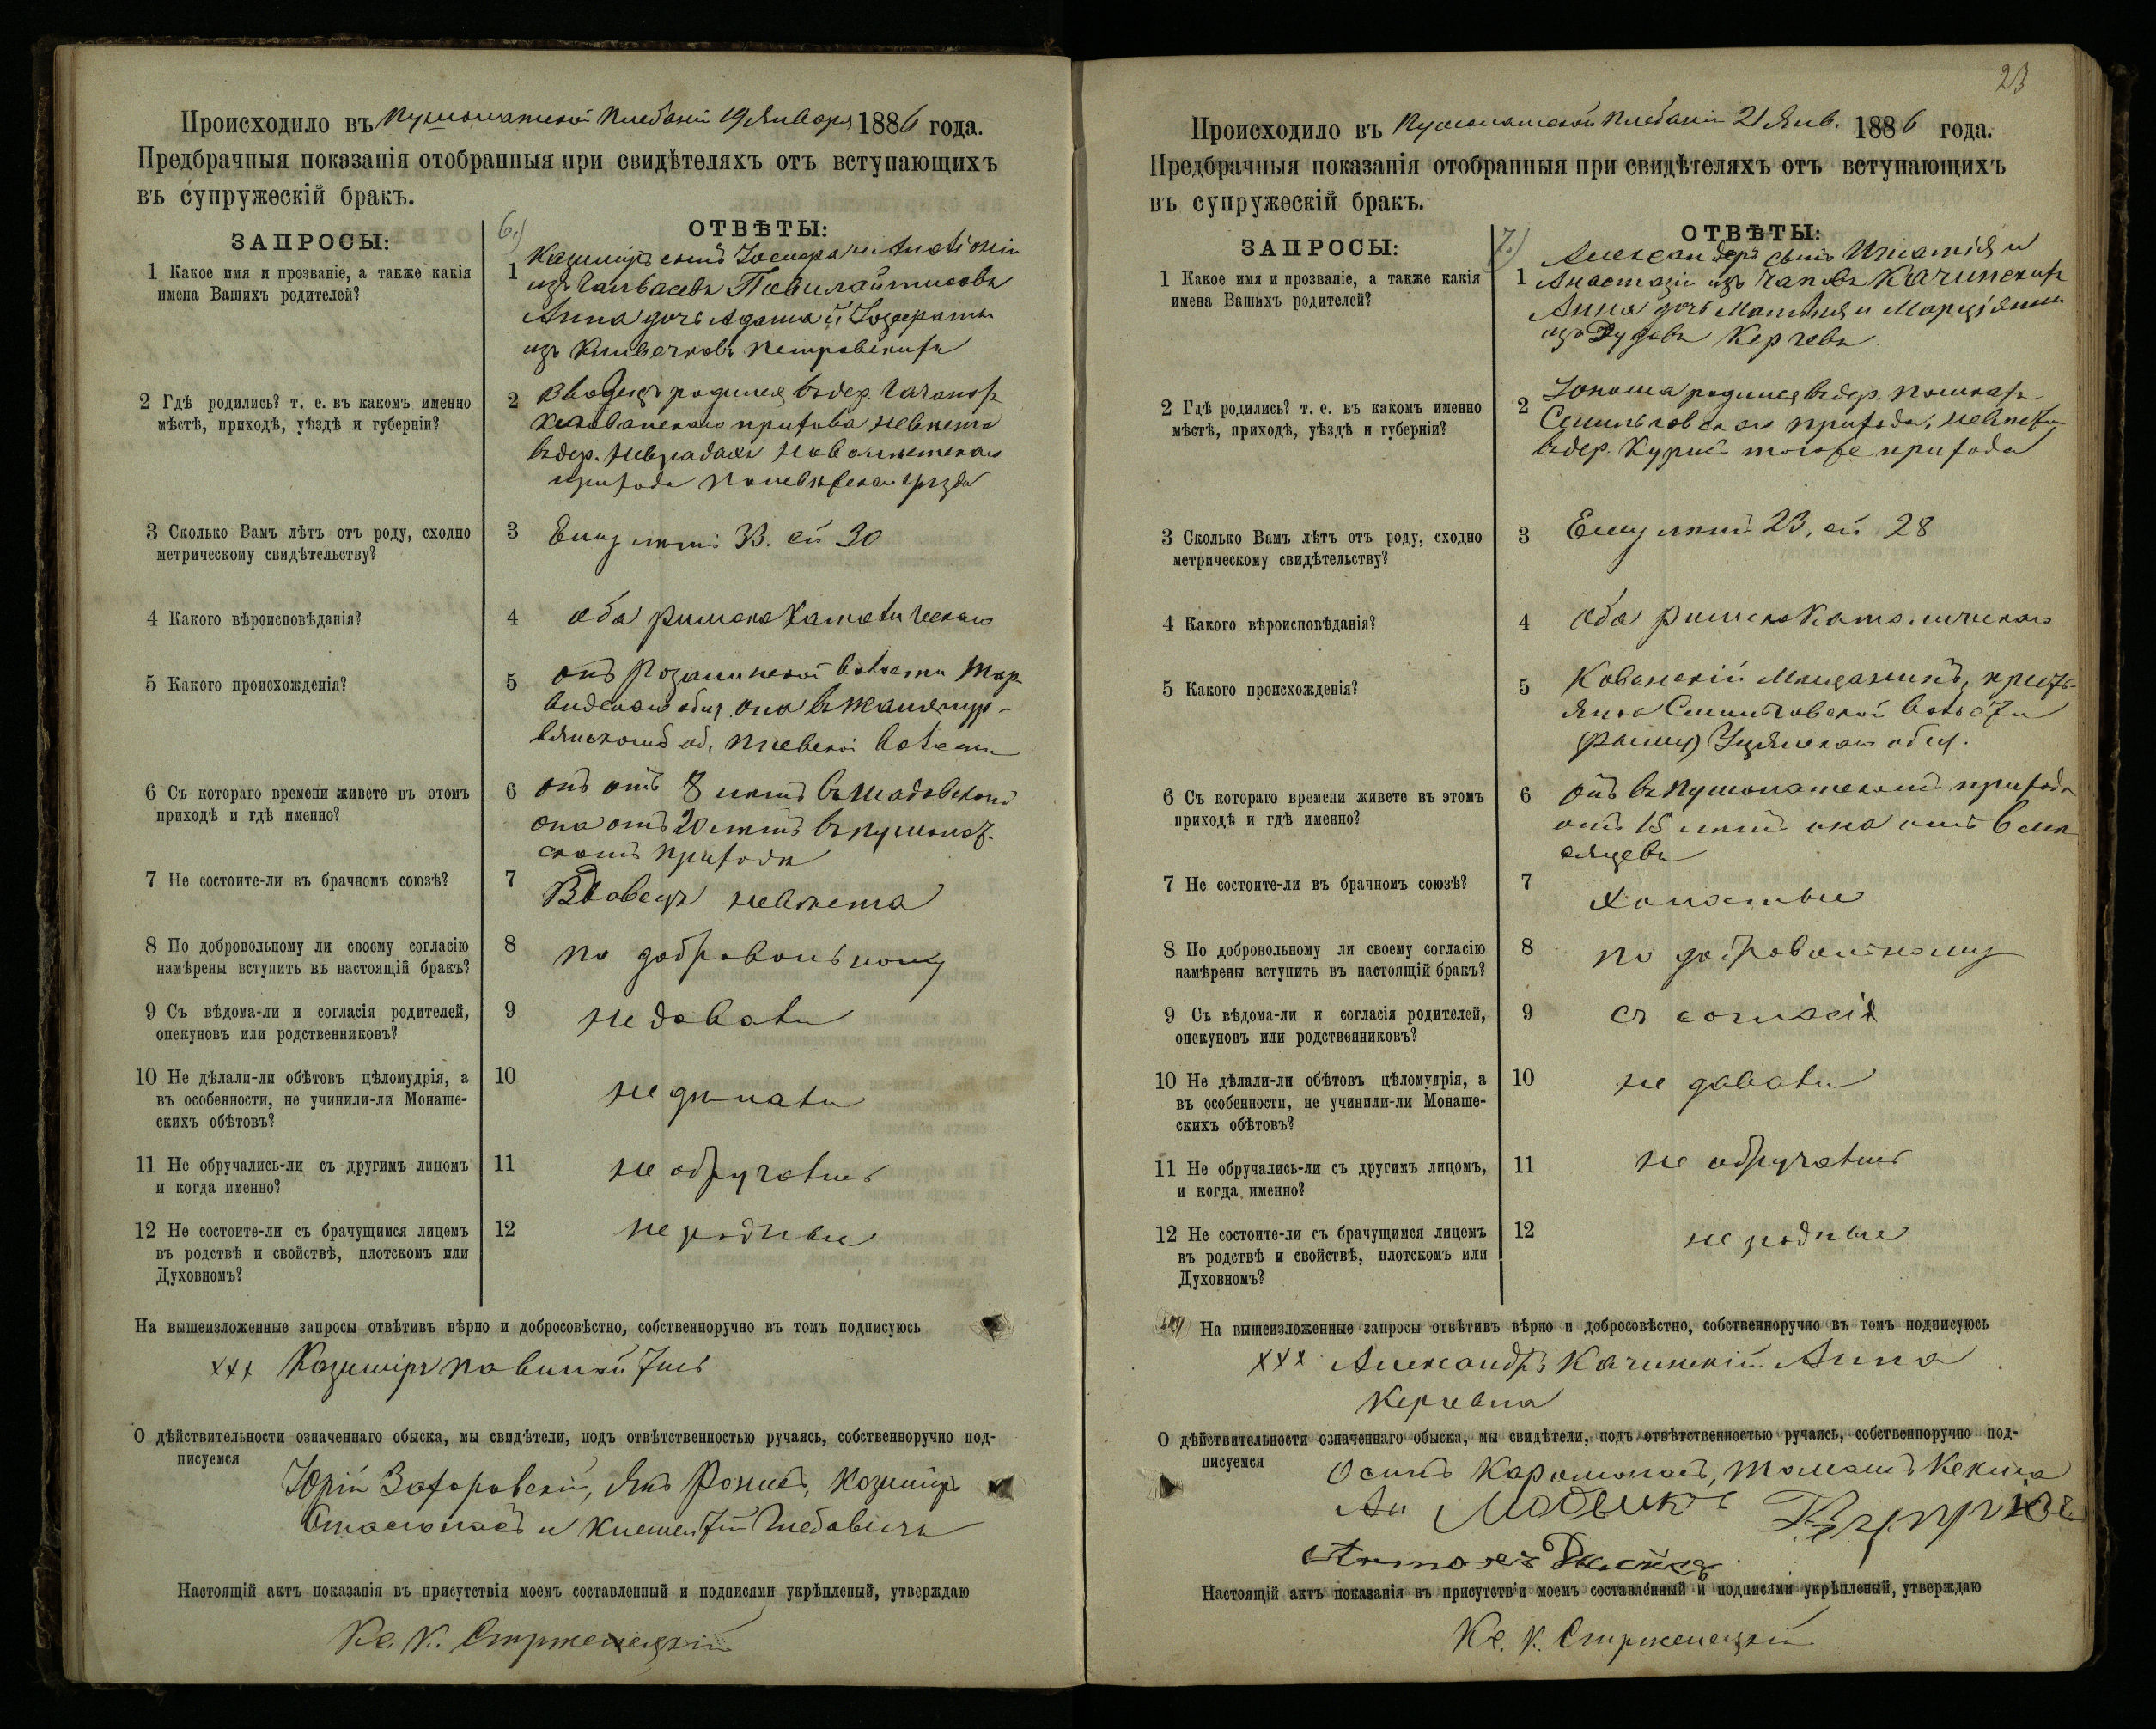 Происходило въ Пушолатской Плебаніи 19 Января 1886 года.
Предбрачныя показанія отобранныя при свидѣтеляхъ отъ вступающихъ
въ супружескій бракъ.
ЗАПРОСЫ:
6.)
ОТВѢТЫ:
1 Какое имя и прозваніе, а также какія
имена Вашихъ родителей?
1 Казиміръ сынъ Іосифа и
изъ Повилайтисовъ
Анна дочь Адама и Іозефаты
изъ Петровскихъ
2 Гдѣ родились? т. е. въ какомъ именно
мѣстѣ, приходѣ, уѣздѣ и губерніи?
2 Вдовецъ родился въ дер.
прихода невѣста
въ дер. Новомѣстскаго
прихода Поневѣжскаго уѣзда
3 Сколько Вамъ лѣтъ отъ роду, сходно
метрическому свидѣтельству?
3 Ему лѣтъ 33. ей 30
4 Какого вѣроисповѣданія?
4 оба римскокатолическаго
5 Какого происхожденія?
5 онъ Розалинской волости
общ. она въ
об, волости
6 Съ котораго времени живете въ этомъ
приходѣ и гдѣ именно?
6 онъ отъ 8 лѣтъ въ Шадовскомъ
она отъ 20 лѣтъ въ Пушолат-
скомъ приходѣ
7 Не состоите-ли въ брачномъ союзѣ?
7 Вдовецъ невѣста
8 По добровольному ли своему согласію
намѣрены вступить въ настоящій бракъ?
8 по добровольному
9 Съ вѣдома-ли и согласія родителей,
опекуновъ или родственниковъ?
9 не давали
10 Не дѣлали-ли обѣтовъ цѣломудрія, а
въ особенности, не учинили-ли Монаше-
скихъ обѣтовъ?
10 не дѣлали
11 Не обручались-ли съ другимъ лицомъ
и когда именно?
11 не обручались
12 Не состоите-ли съ брачущимся лицемъ
въ родствѣ и свойствѣ, плотскомъ или
Духовномъ?
12 не родные
На вышеизложенные запросы отвѣтивъ вѣрно и добросовѣстно, собственноручно въ томъ подписуюсь
xxx Казиміръ Повилайтись
О дѣйствительности означеннаго обыска, мы свидѣтели, подъ отвѣтственностью ручаясь, собственноручно под-
писуемся
Юрій Захоровскій, Янъ Казиміръ
и Клементій
Настоящій актъ показанія въ присутствіи моемъ составленный и подписями укрѣпленый, утверждаю
Кс. К. Стржемецкій
23
Происходило въ Пушолатской Плебаніи 21 Янв. 1886 года.
Предбрачныя показанія отобранныя при свидѣтеляхъ отъ вступающихъ
въ супружескій бракъ.
ЗАПРОСЫ:
7.)
ОТВѢТЫ:
1 Какое имя и прозваніе, а также какія
имена Вашихъ родителей?
1 Александеръ сынъ Игнатія и
Анастазіи изъ Чаповъ Качинскихъ
Анна дочь Матвѣя и Марціянны
изъ Дудовъ Керчевъ
2 Гдѣ родились? т. е. въ какомъ именно
мѣстѣ, приходѣ, уѣздѣ и губерніи?
2 Юноша родился въ дер.
прихода, невѣста
въ дер. тогоже прихода
3 Сколько Вамъ лѣтъ отъ роду, сходно
метрическому свидѣтельству?
3 Ему лѣтъ 23, ей 28
4 Какого вѣроисповѣданія?
4 оба римскокатолическаго
5 Какого происхожденія?
5 Ковенскій Мѣщанинъ, кресть-
янка волости
общ.
6 Съ котораго времени живете въ этомъ
приходѣ и гдѣ именно?
6 онъ въ Пушолатскомъ приходѣ
отъ 15 лѣтъ она отъ 6 мѣ-
сяцевъ
7 Не состоите-ли въ брачномъ союзѣ?
7 холостые
8 По добровольному ли своему согласію
намѣрены вступить въ настоящій бракъ?
8 по добровольному
9 Съ вѣдома-ли и согласія родителей,
опекуновъ или родственниковъ?
9 съ согласія
10 Не дѣлали-ли обѣтовъ цѣломудрія, а
въ особенности, не учинили-ли Монаше-
скихъ обѣтовъ?
10 не давали
11 Не обручались-ли съ другимъ лицомъ,
и когда именно?
11 не обручались
12 Не состоите-ли съ брачущимся лицемъ
въ родствѣ и свойствѣ, плотскомъ или
Духовномъ?
12 не родные
На вышеизложенные запросы отвѣтивъ вѣрно и добросовѣстно, собственноручно въ томъ подписуюсь
xxx Александръ Качинскій Анна
Керчевна
О дѣйствительности означеннаго обыска, мы свидѣтели, подъ отвѣтственностью ручаясь, собственноручно под-
писуемся
Осипъ Томашъ
Настоящій актъ показанія въ присутствіи моемъ составленный и подписями укрѣпленый, утверждаю
Кс. К. Стржемецкій